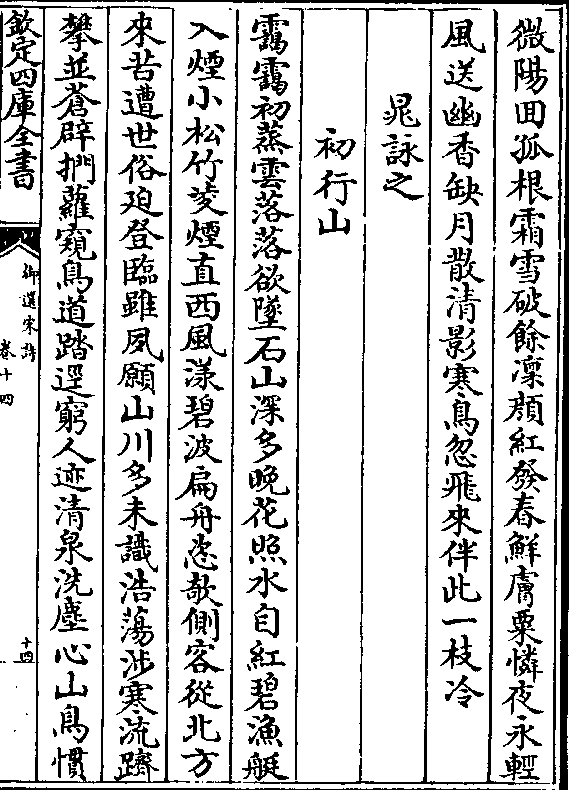 微陽囬孤根霜雪破餘凜顔紅發春鮮膚粟憐夜永輕
風送幽香缺月散清影寒鳥忽飛來伴此一枝冷
晁詠之
初行山
靄靄初蒸雲落落欲墜石山深多晚花照水自紅碧漁艇
入煙小松竹蒌煙直西風漾碧波扁舟恣欹側客從北方
來苦遭世俗廹登臨雖夙願山川多未識浩蕩涉寒流躋
攀並蒼辟捫蘿窺鳥道踏逕窮人迹清泉洗塵心山鳥慣
欽定四庫全書
御選宋詩
卷十四
十四